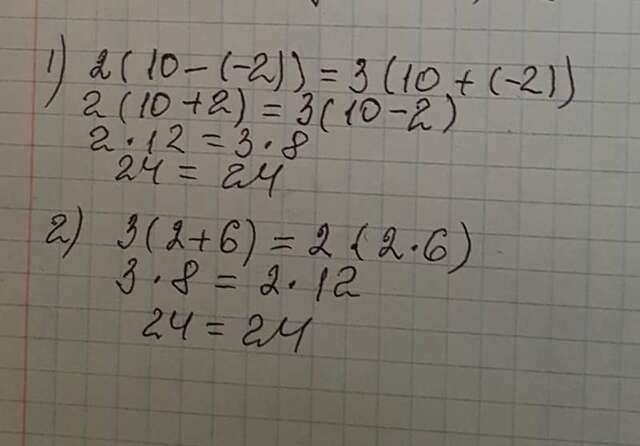 1) 2(10-(-2))=3(10+(-2))
2(10+2)=3(10-2)
2·12=3·8
24=24
2) 3(2+6)=2(2·6)
3·8=2·12
24=24